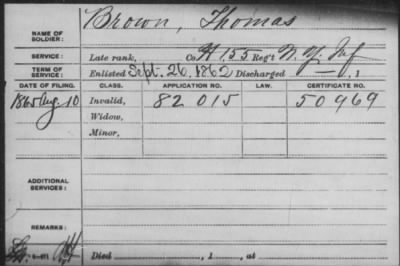 NAME OF SOLDIER: Brown, Thomas
SERVICE: Late rank, Co. H 155 Reg't N. Y. Inf
TERM OF SERVICE: Enlisted Sept. 26, 1862 Discharged —, 1
DATE OF FILING. CLASS. APPLICATION NO. LAW. CERTIFICATE NO.
1865 Aug. 10 Invalid, 82 015 50969
Widow,
Minor,
ADDITIONAL SERVICES:
REMARKS:
Died , 1 , at